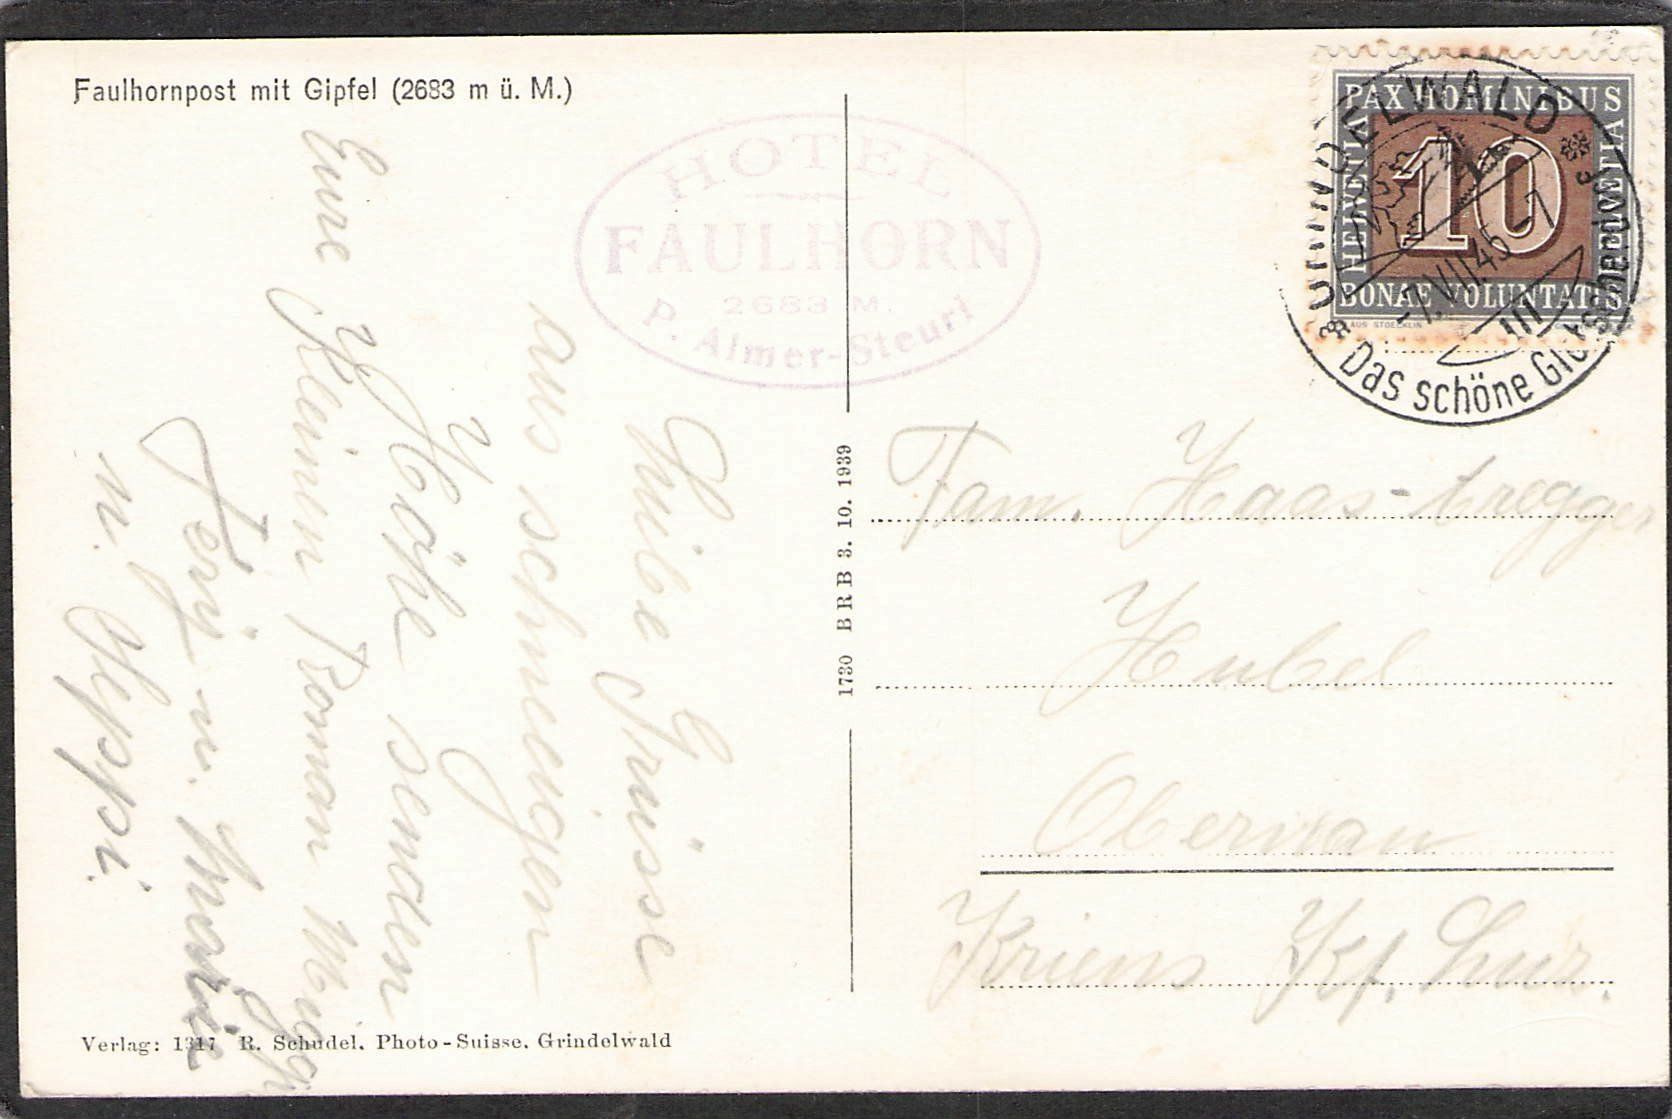 Faulhornpost mit Gipfel (2683 m ü. M.)
HOTEL
FAULHORN
2683 M.
P. Almer-Steuri
Liebe Grüsse
aus schneigen
Höhe senden
Eure Kleinen Roman
u. Marie
u. Seppi.
1730 BRB 3. 10. 1939
PAX HOMINIBUS
HELVETIA
10
HELVETIA
BONAE VOLUNTATIS
AUS STOECKLIN
GRINDELWALD
-7.VIII.45-7
Das schöne Gletscherdorf
Fam. Haas-
Hubel
Obernau
Kriens Kt. Luz.
Verlag: 1317 R. Schudel, Photo-Suisse, Grindelwald